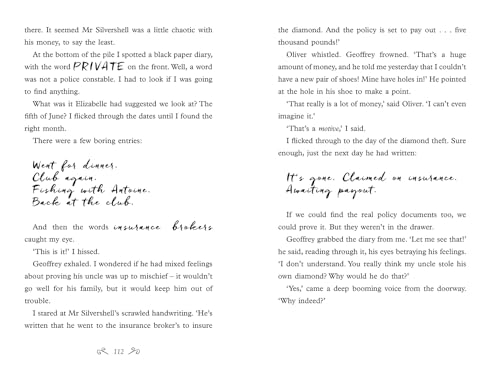 there. It seemed Mr Silvershell was a little chaotic with
his money, to say the least.
At the bottom of the pile I spotted a black paper diary,
with the word PRIVATE on the front. Well, a word
was not a police constable. I had to look if I was going
to find anything.
What was it Elizabelle had suggested we look at? The
fifth of June? I flicked through the dates until I found the
right month.
There were a few boring entries:
Went for dinner.
Club again.
Fishing with Antoine.
Back at the club.
And then the words insurance brokers
caught my eye.
‘This is it!’ I hissed.
Geoffrey exhaled. I wondered if he had mixed feelings
about proving his uncle was up to mischief – it wouldn’t
go well for his family, but it would keep him out of
trouble.
I stared at Mr Silvershell’s scrawled handwriting. ‘He’s
written that he went to the insurance broker’s to insure
112
the diamond. And the policy is set to pay out . . . five
thousand pounds!’
Oliver whistled. Geoffrey frowned. ‘That’s a huge
amount of money, and he told me yesterday that I couldn’t
have a new pair of shoes! Mine have holes in!’ He pointed
at the hole in his shoe to make a point.
‘That really is a lot of money,’ said Oliver. ‘I can’t even
imagine it.’
‘That’s a motive,’ I said.
I flicked through to the day of the diamond theft. Sure
enough, just the next day he had written:
It’s gone. Claimed on insurance.
Awaiting payout.
If we could find the real policy documents too, we
could prove it. But they weren’t in the drawer.
Geoffrey grabbed the diary from me. ‘Let me see that!’
he said, reading through it, his eyes betraying his feelings.
‘I don’t understand. You really think my uncle stole his
own diamond? Why would he do that?’
‘Yes,’ came a deep booming voice from the doorway.
‘Why indeed?’